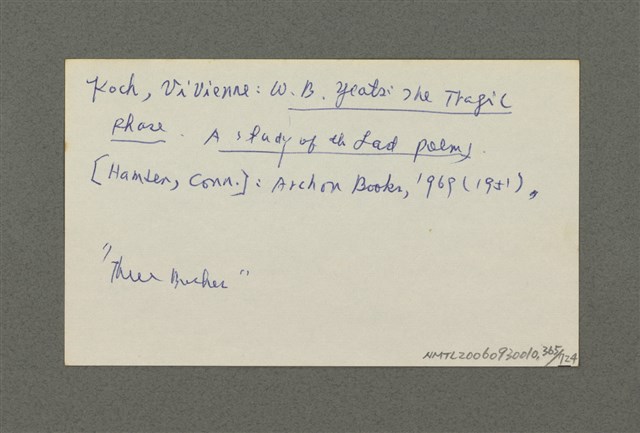 Koch, Vivienne: W. B. Yeats: The Tragic
Phase. A study of the Last poems.
[Hamden, Conn.]: Archon Books, 1969 (1951),
"Three Bushes"
NMTL20060930010,365/724